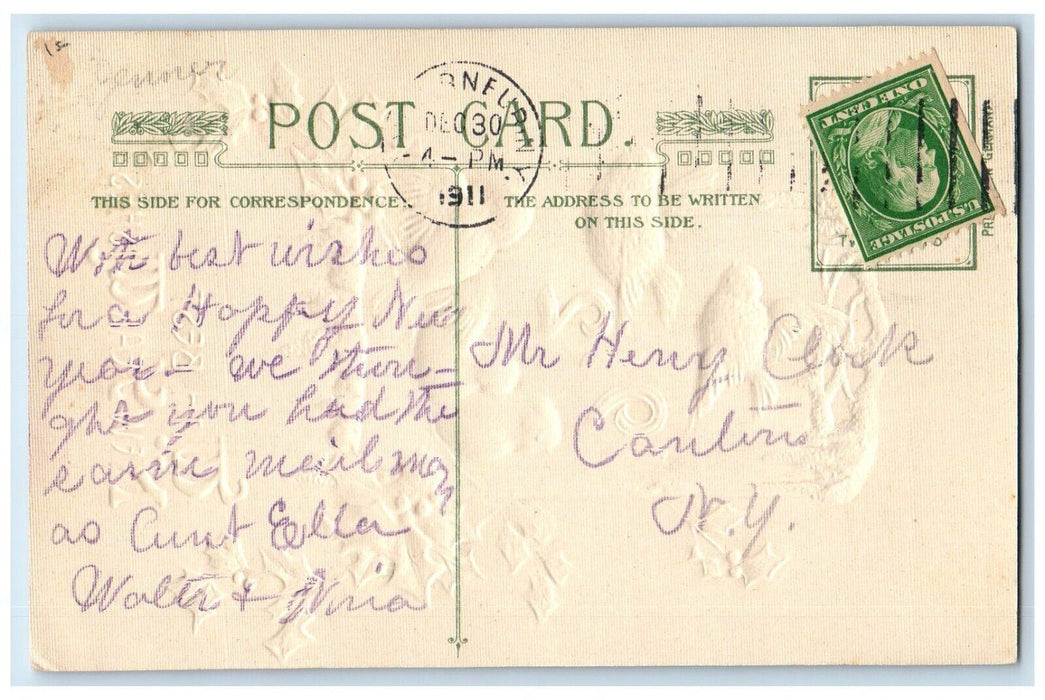 Denner
POST CARD.
RNEUR
DEC 30
4 - PM.
N.Y.
1911
ONE CENT
U.S. POSTAGE
GERMANY
THIS SIDE FOR CORRESPONDENCE.
THE ADDRESS TO BE WRITTEN
ON THIS SIDE.
With best wishes
for a Happy New
year - we thou-
ght you had the
same mailing
as Aunt Ella
Walter &
Mr Henry Clock
Canton
N.Y.